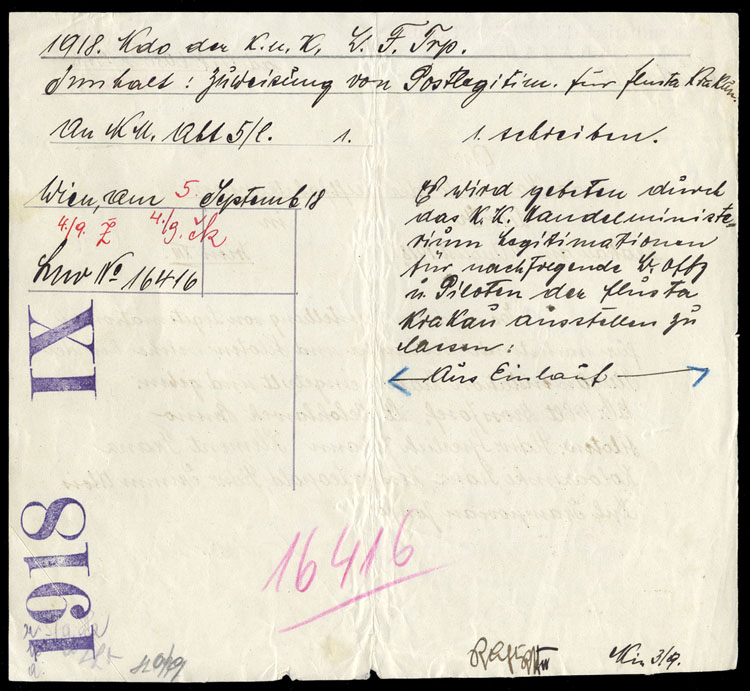 1918. Kdo der K.u.K. L. F. Trp.
Innhalt: Zuweisung von Postlegitim. für Flusta Krakau.
An K.M. Abt 5/l. 1. 1. schreiben.
Wien, am 5. Septemb 18
4./9. Ž 4./9. čk
Luw No 16416
IX
1918
Es wird gebeten durch
das K.K. Handelsministe-
rium Legitimationen
für nachfolgende L. Offz
u Piloten der Flusta
Krakau ausstellen zu
lassen:
Aus Einlauf
16416
10/9
3/9.